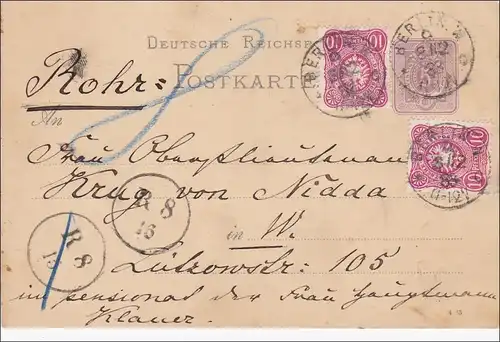 DEUTSCHE REICHSP
Rohr=
POSTKART
An
Frau Oberstlieutenant
Krug von Nidda
in W.
Lützowstr: 105
im pensionat der Frau Hauptmann
Klauer.
R 8
16
R 8
15
BERLIN, W
BERLIN, W
BERLIN
10
10